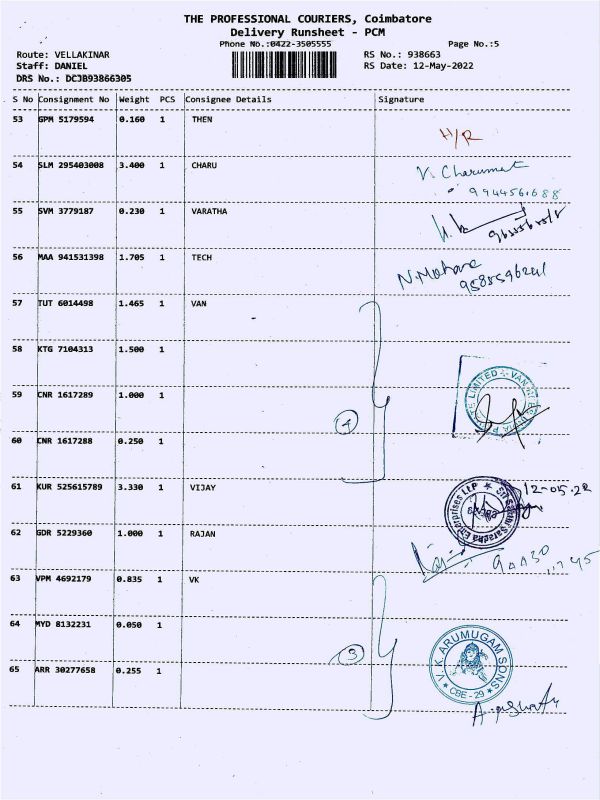 THE PROFESSIONAL COURIERS, Coimbatore
Delivery Runsheet - PCM
Phone No.:0422-3505555
Page No.:5
Route: VELLAKINAR
RS No.: 938663
Staff: DANIEL
RS Date: 12-May-2022
DRS No.: DCJB93866305
S No Consignment No Weight PCS Consignee Details Signature
53 GPM 5179594 0.160 1 THEN
H/R
54 SLM 295403008 3.400 1 CHARU
V. Charumat
9944561688
55 SVM 3779187 0.230 1 VARATHA
56 MAA 941531398 1.705 1 TECH
9585596241
57 TUT 6014498 1.465 1 VAN
58 KTG 7104313 1.500 1
59 CNR 1617289 1.000 1
4
60 CNR 1617288 0.250 1
61 KUR 525615789 3.330 1 VIJAY
12-05-22
62 GDR 5229360 1.000 1 RAJAN
63 VPM 4692179 0.835 1 VK
64 MYD 8132231 0.050 1
3
V. K. ARUMUGAM SONS
CBE - 29
65 ARR 30277658 0.255 1